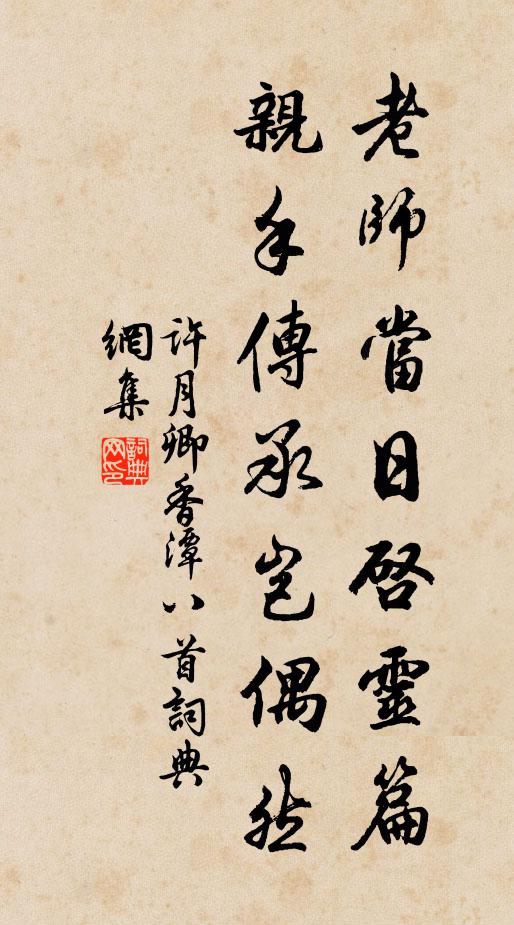 老師當日啓靈篇
親手傳承豈偶然
許月卿香潭八首詞典
網集
詞典網印